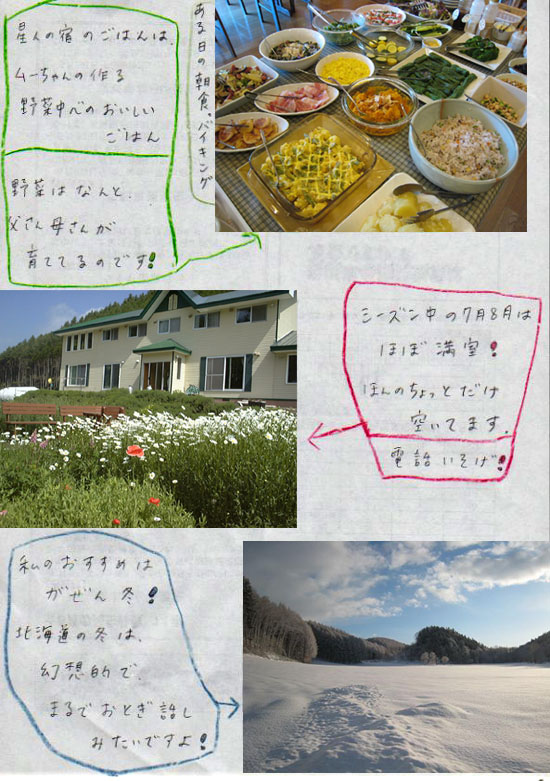 星人の宿のごはんは、
ムーちゃんの作る
野菜中心のおいしい
ごはん
野菜はなんと、
父さん母さんが
育ててるのです!
ある日の朝食。バイキング
シーズン中の7月8月は
ほぼ満室!
ほんのちょっとだけ
空いてます。
電話いそげ!
私のおすすめは
がぜん冬!
北海道の冬は、
幻想的で、
まるでおとぎ話し
みたいですよ!